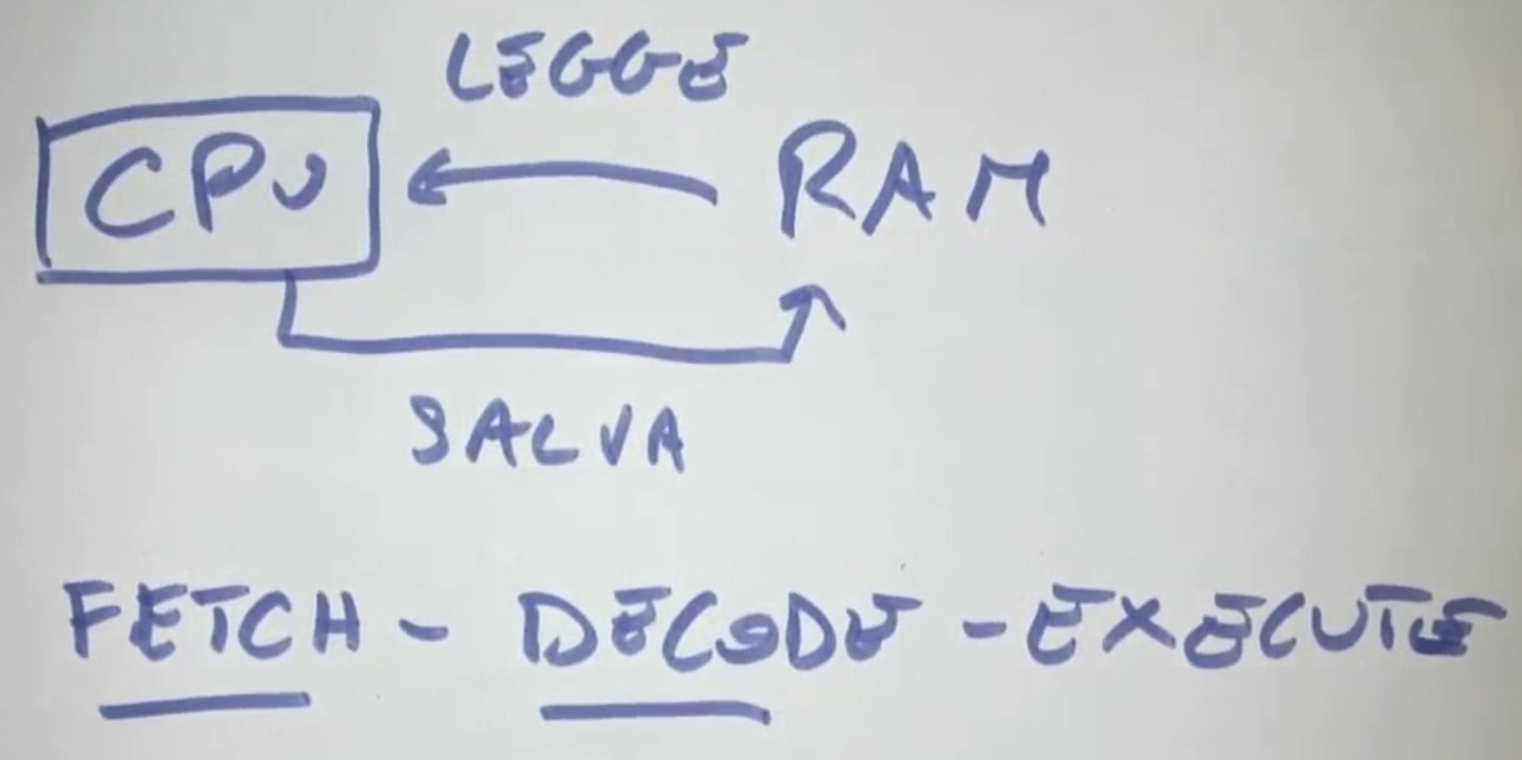 LEGGE
CPU
RAM
SALVA
FETCH - DECODE - EXECUTE